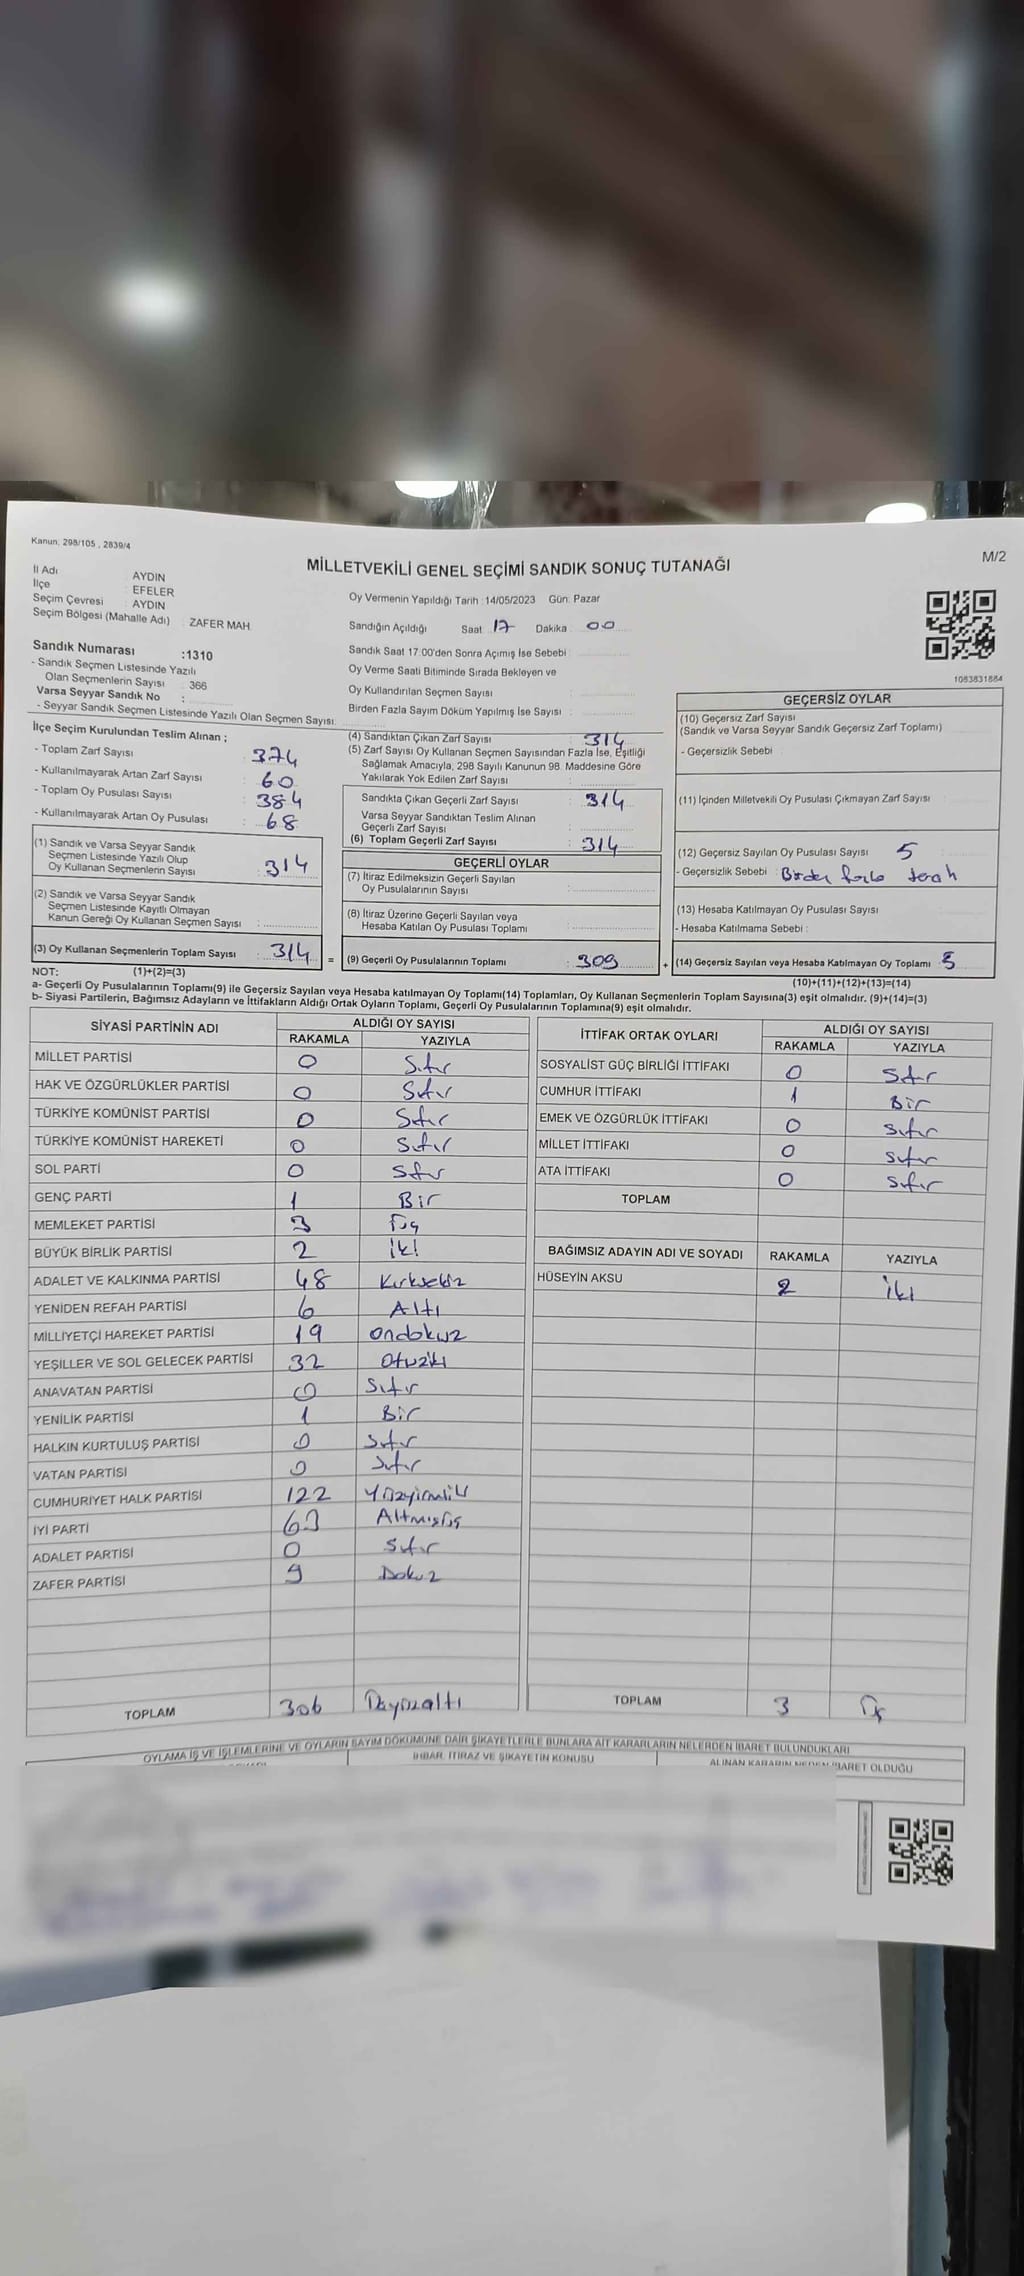 Kanun: 298/105 , 2839/4
M/2
MİLLETVEKİLİ GENEL SEÇİMİ SANDIK SONUÇ TUTANAĞI
İl Adı : AYDIN
İlçe : EFELER
Seçim Çevresi : AYDIN
Seçim Bölgesi (Mahalle Adı) : ZAFER MAH
Oy Vermenin Yapıldığı Tarih :14/05/2023 Gün: Pazar
Sandığın Açıldığı Saat 17 Dakika 00
Sandık Numarası :1310
- Sandık Seçmen Listesinde Yazılı
Olan Seçmenlerin Sayısı : 366
Varsa Seyyar Sandık No :
- Seyyar Sandık Seçmen Listesinde Yazılı Olan Seçmen Sayısı:
Sandık Saat 17:00'den Sonra Açımış İse Sebebi :
Oy Verme Saati Bitiminde Sırada Bekleyen ve
Oy Kullandırılan Seçmen Sayısı :
Birden Fazla Sayım Döküm Yapılmış İse Sayısı :
1083831884
İlçe Seçim Kurulundan Teslim Alınan ;
- Toplam Zarf Sayısı : 374
- Kullanılmayarak Artan Zarf Sayısı : 60
- Toplam Oy Pusulası Sayısı : 384
- Kullanılmayarak Artan Oy Pusulası : 68
(1) Sandık ve Varsa Seyyar Sandık
Seçmen Listesinde Yazılı Olup
Oy Kullanan Seçmenlerin Sayısı : 314
(2) Sandık ve Varsa Seyyar Sandık
Seçmen Listesinde Kayıtlı Olmayan
Kanun Gereği Oy Kullanan Seçmen Sayısı :
(3) Oy Kullanan Seçmenlerin Toplam Sayısı : 314
(4) Sandıktan Çıkan Zarf Sayısı : 314
(5) Zarf Sayısı Oy Kullanan Seçmen Sayısından Fazla İse, Eşitliği
Sağlamak Amacıyla, 298 Sayılı Kanunun 98. Maddesine Göre
Yakılarak Yok Edilen Zarf Sayısı :
Sandıkta Çıkan Geçerli Zarf Sayısı : 314
Varsa Seyyar Sandıktan Teslim Alınan
Geçerli Zarf Sayısı :
(6) Toplam Geçerli Zarf Sayısı : 314
GEÇERLİ OYLAR
(7) İtiraz Edilmeksizin Geçerli Sayılan
Oy Pusulalarının Sayısı :
(8) İtiraz Üzerine Geçerli Sayılan veya
Hesaba Katılan Oy Pusulası Toplamı :
= (9) Geçerli Oy Pusulalarının Toplamı : 309
GEÇERSİZ OYLAR
(10) Geçersiz Zarf Sayısı
(Sandık ve Varsa Seyyar Sandık Geçersiz Zarf Toplamı) :
- Geçersizlik Sebebi :
(11) İçinden Milletvekili Oy Pusulası Çıkmayan Zarf Sayısı :
(12) Geçersiz Sayılan Oy Pusulası Sayısı 5
- Geçersizlik Sebebi : Birden fazla tercih
(13) Hesaba Katılmayan Oy Pusulası Sayısı :
- Hesaba Katılmama Sebebi :
+ (14) Geçersiz Sayılan veya Hesaba Katılmayan Oy Toplamı : 5
NOT: (1)+(2)=(3) (10)+(11)+(12)+(13)=(14)
a- Geçerli Oy Pusulalarının Toplamı(9) ile Geçersiz Sayılan veya Hesaba katılmayan Oy Toplamı(14) Toplamları, Oy Kullanan Seçmenlerin Toplam Sayısına(3) eşit olmalıdır. (9)+(14)=(3)
b- Siyasi Partilerin, Bağımsız Adayların ve İttifakların Aldığı Ortak Oyların Toplamı, Geçerli Oy Pusulalarının Toplamına(9) eşit olmalıdır.
SİYASİ PARTİNİN ADI ALDIĞI OY SAYISI
RAKAMLA YAZIYLA
MİLLET PARTİSİ 0 Sıfır
HAK VE ÖZGÜRLÜKLER PARTİSİ 0 Sıfır
TÜRKİYE KOMÜNİST PARTİSİ 0 Sıfır
TÜRKİYE KOMÜNİST HAREKETİ 0 Sıfır
SOL PARTİ 0 Sıfır
GENÇ PARTİ 1 Bir
MEMLEKET PARTİSİ 3 Üç
BÜYÜK BİRLİK PARTİSİ 2 İki
ADALET VE KALKINMA PARTİSİ 48 Kırksekiz
YENİDEN REFAH PARTİSİ 6 Altı
MİLLİYETÇİ HAREKET PARTİSİ 19 Ondokuz
YEŞİLLER VE SOL GELECEK PARTİSİ 32 Otuziki
ANAVATAN PARTİSİ 0 Sıfır
YENİLİK PARTİSİ 1 Bir
HALKIN KURTULUŞ PARTİSİ 0 Sıfır
VATAN PARTİSİ 0 Sıfır
CUMHURİYET HALK PARTİSİ 122 Yüzyirmiiki
İYİ PARTİ 63 Altmışüç
ADALET PARTİSİ 0 Sıfır
ZAFER PARTİSİ 9 Dokuz
TOPLAM 306 Üçyüzaltı
İTTİFAK ORTAK OYLARI ALDIĞI OY SAYISI
RAKAMLA YAZIYLA
SOSYALİST GÜÇ BİRLİĞİ İTTİFAKI 0 Sıfır
CUMHUR İTTİFAKI 1 Bir
EMEK VE ÖZGÜRLÜK İTTİFAKI 0 Sıfır
MİLLET İTTİFAKI 0 Sıfır
ATA İTTİFAKI 0 Sıfır
TOPLAM
BAĞIMSIZ ADAYIN ADI VE SOYADI RAKAMLA YAZIYLA
HÜSEYİN AKSU 2 İki
TOPLAM 3 Üç
OYLAMA İŞ VE İŞLEMLERİNE VE OYLARIN SAYIM DÖKÜMÜNE DAİR ŞİKAYETLERLE BUNLARA AİT KARARLARIN NELERDEN İBARET BULUNDUKLARI
İHBAR, İTİRAZ VE ŞİKAYETİN KONUSU
ALINAN KARARIN NEDEN İBARET OLDUĞU